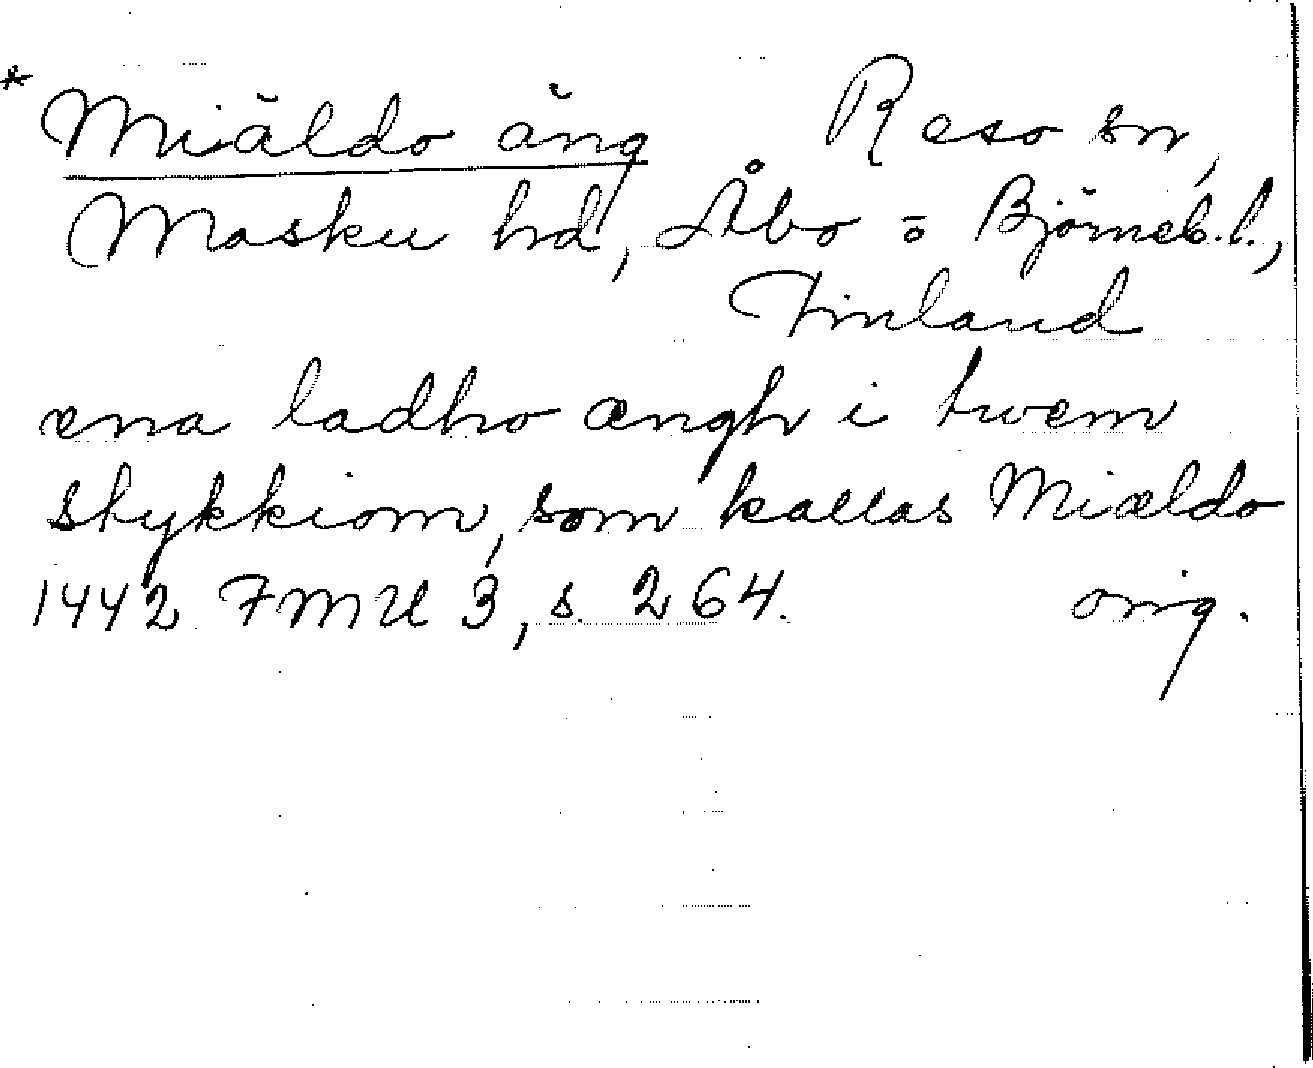 * Miäldo äng Reso sn,
Masku hd, Åbo = Björneb. l.,
Finland
ena ladho ængh i twem
stykkiom, som kallas Miældo
1442 FMU 3, s. 264. orig.